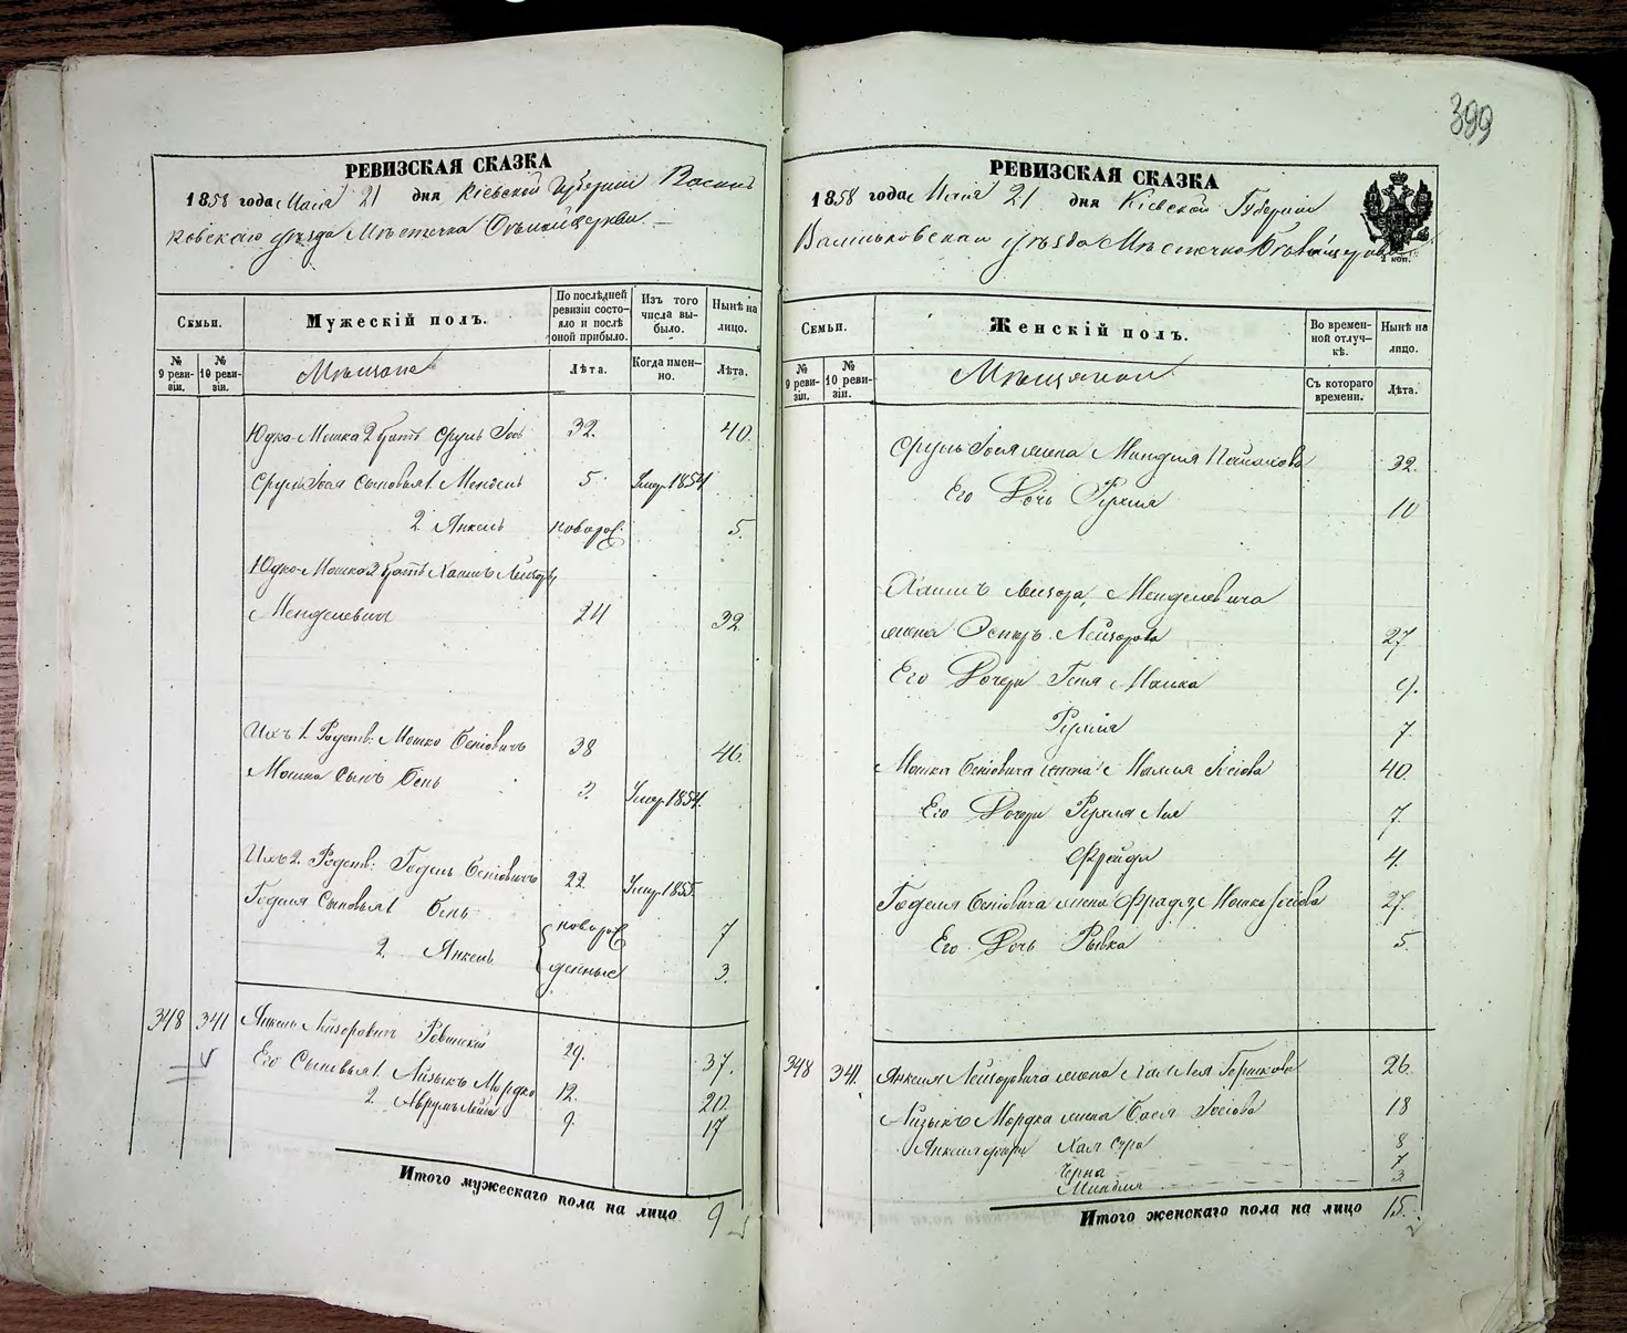 399
РЕВИЗСКАЯ СКАЗКА
1858 года Маія 21 дня Кіевской Губерніи Василь
ковскаго уѣзда Мѣстечка Бѣлойцеркви
Семьи.
Мужескій полъ.
По послѣдней ревизіи состояло и послѣ оной прибыло.
Изъ того числа выбыло.
Нынѣ на лицо.
№ 9 ревизіи.
№ 10 ревизіи.
Мѣщане
Лѣта.
Когда именно.
Лѣта.
Юдка-Мошка 2 братъ Сруль Іось 32. 40.
Сруль Іося сыновья 1. Мендель 5 Умер. 1854
2. Янкель новорож. 5.
Юдка-Мошка 3 братъ Хаимъ Лейзоръ
Менделевичъ 24 32
Ихъ 1. Родств: Мошко Беніовичъ 38 46.
Мошка сынъ Бень 3. Умер. 1854.
Ихъ 2. Родств: Годель Беніовичъ 22. Умер. 1855.
Годеля Сыновья 1 Бень новорож 7
2. Янкель денные 3.
348 341 Янкель Лейзоровичъ Ровинскій 29. 37.
Его Сыновья 1. Айзыкъ Мордко 12. 20.
2. Аврумъ 9. 17
Итого мужескаго пола на лицо 9
РЕВИЗСКАЯ СКАЗКА
1858 года Маія 21 дня Кіевской Губерніи
Васильковскаго уѣзда Мѣстечка Бѣлойцеркви
2 коп.
Семьи.
Женскій полъ.
Во временной отлучкѣ.
Нынѣ на лицо.
№ 9 ревизіи.
№ 10 ревизіи.
Мѣщанки
Съ котораго времени.
Лѣта.
Сруль Іося жена Миндля 32.
Его Дочь Рухля 10
Хаимъ Лейзора Менделевича
жена Эстеръ Лейзорова 27
Его Дочери Геня Машка 9.
Рухля 7.
Мошка Беніовича жена Малка Іосіова 40.
Его Дочери Рухля Лея 7.
Фрейда 4.
Годеля Беніовича жена Фрада Мошко Іосіова 27.
Его Дочь Рывка 5.
348 341. Янкеля Лейзоровича жена Хая Лея Гершкова 26.
Айзыкъ Мордка жена Бася Іосіова 18
Янкеля дочери Хая Сура 8
Черна 7
Миндля 3
Итого женскаго пола на лицо 15.